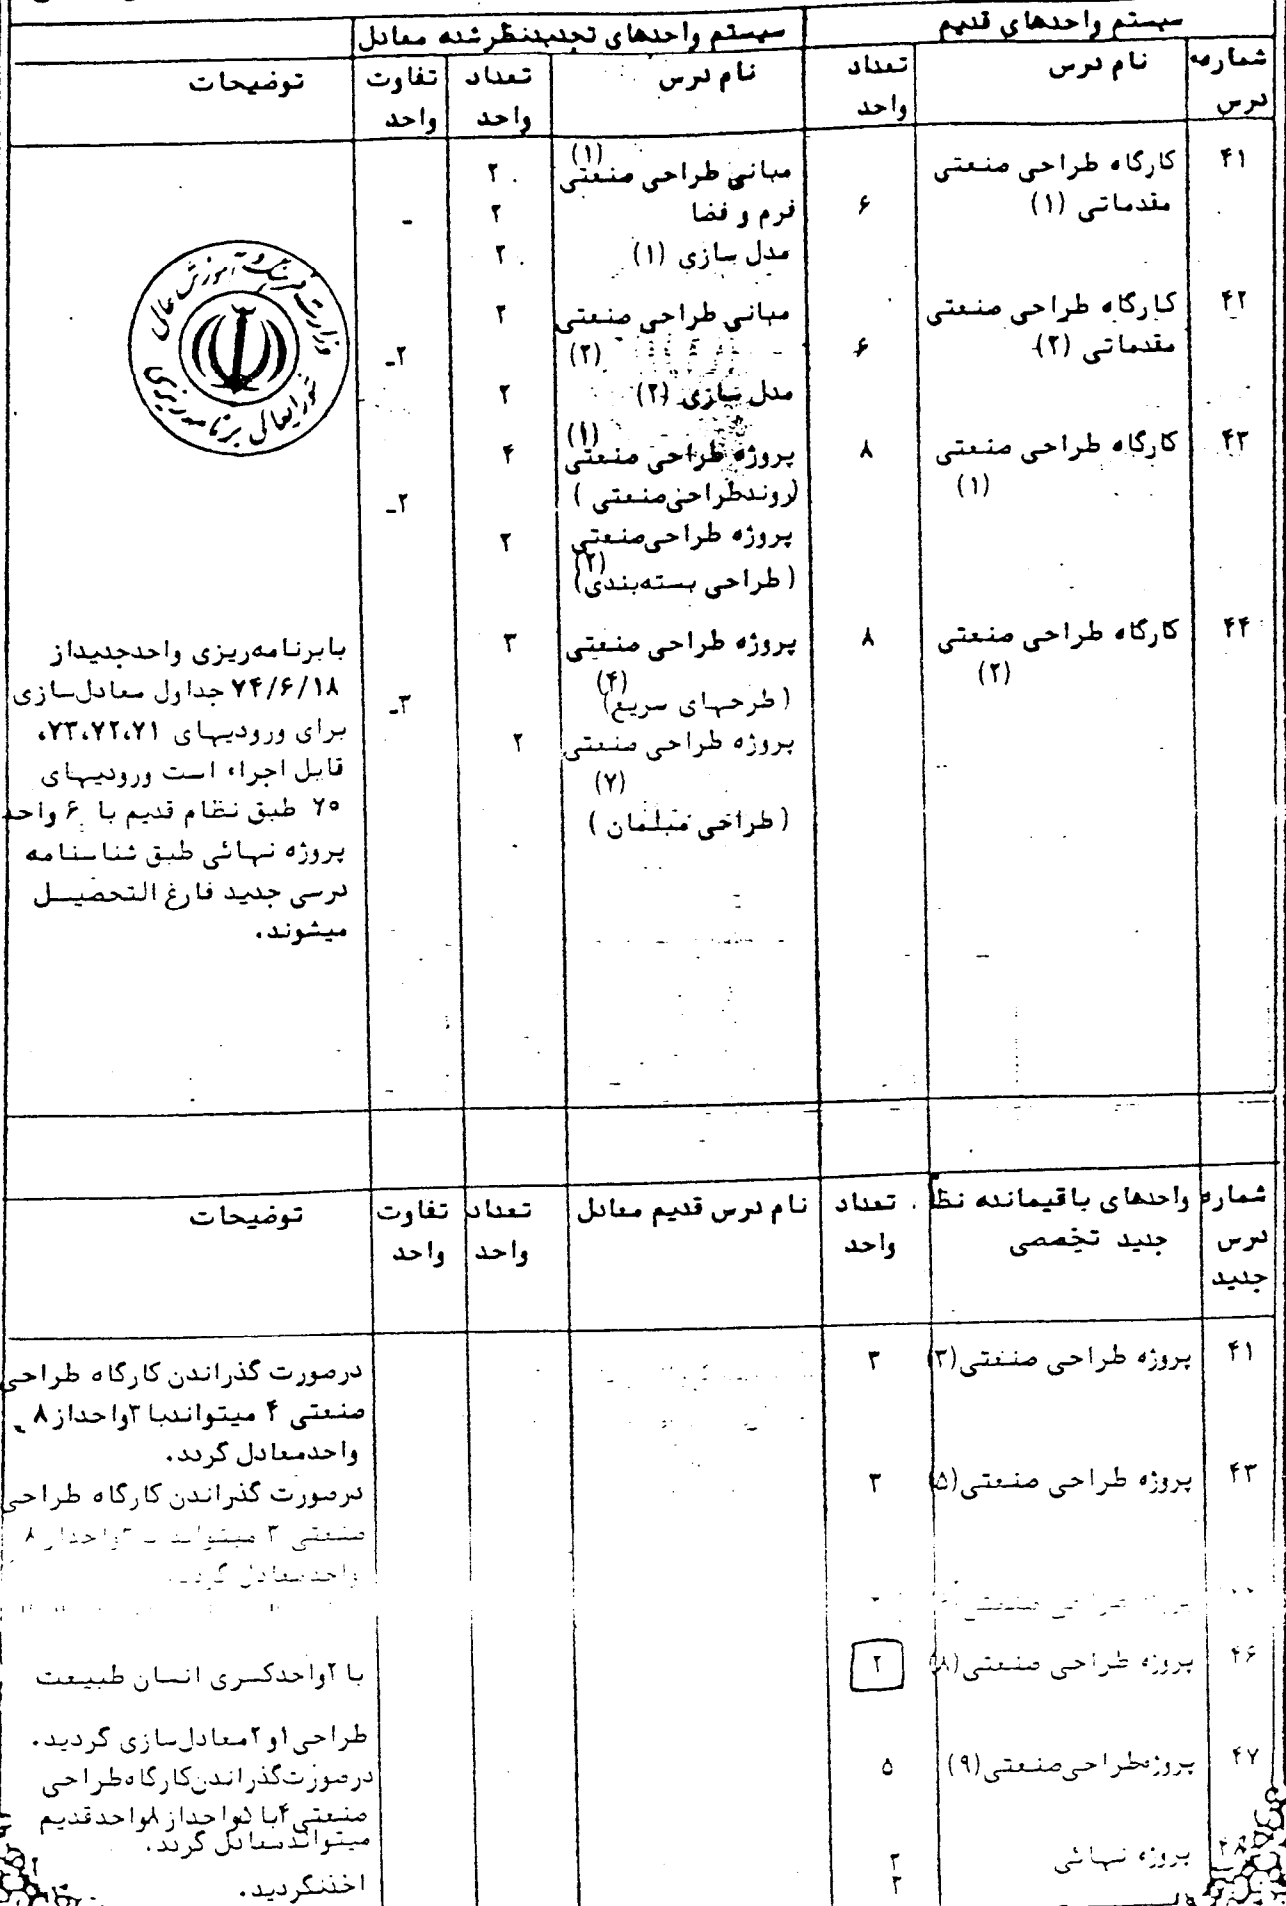 سیستم واحدهای قدیم
سیستم واحدهای تجدیدنظر شده معادل
شماره درس
نام درس
تعداد واحد
نام درس
تعداد واحد
تفاوت واحد
توضیحات
۴۱
کارگاه طراحی صنعتی
مقدماتی (۱)
۶
مبانی طراحی صنعتی (۱)
۲
فرم و فضا
۲
مدل سازی (۱)
۲
-
۴۲
کارگاه طراحی صنعتی
مقدماتی (۲)
۶
مبانی طراحی صنعتی
(۲)
۲
مدل سازی (۲)
۲
۲-
۴۳
کارگاه طراحی صنعتی
(۱)
۸
پروژه طراحی صنعتی (۱)
(روندطراحی‌صنعتی)
۴
پروژه طراحی‌صنعتی (۲)
(طراحی بسته‌بندی)
۲
۲-
۴۴
کارگاه طراحی صنعتی
(۲)
۸
پروژه طراحی صنعتی
(۴)
(طرحهای سریع)
۳
پروژه طراحی صنعتی
(۷)
(طراحی مبلمان)
۲
۳-
بابرنامه‌ریزی واحدجدیداز
۷۴/۶/۱۸ جداول معادل‌سازی
برای ورودیهای ۷۳،۷۲،۷۱،
قابل اجراء است ورودیهای
۷۰ طبق نظام قدیم با ۶ واحد
پروژه نهائی طبق شناسنامه
درسی جدید فارغ التحصیل
میشوند.
وزارت فرهنگ و آموزش عالی
شورایعالی برنامه‌ریزی
شماره درس جدید
واحدهای باقیمانده نظا
جدید تخصصی
تعداد واحد
نام درس قدیم معادل
تعداد واحد
تفاوت واحد
توضیحات
۴۱
پروژه طراحی صنعتی(۳)
۳
درصورت گذراندن کارگاه طراحی
صنعتی ۴ میتواندبا ۳واحداز۸
واحدمعادل گردد.
۴۳
پروژه طراحی صنعتی(۵)
۳
درصورت گذراندن کارگاه طراحی
صنعتی ۳ میتواند با ۳واحداز۸
واحدمعادل گردد.
۴۶
پروژه طراحی صنعتی(۸)
۲
با ۲واحدکسری انسان طبیعت
طراحی۱و۲معادل‌سازی گردید.
۴۷
پروژه‌طراحی‌صنعتی(۹)
۵
درصورت‌گذراندن‌کارگاه‌طراحی
صنعتی۴با ۵واحداز۸واحدقدیم
میتواندمعادل گردد.
۴۸
پروژه نهائی
اخذنگردید.